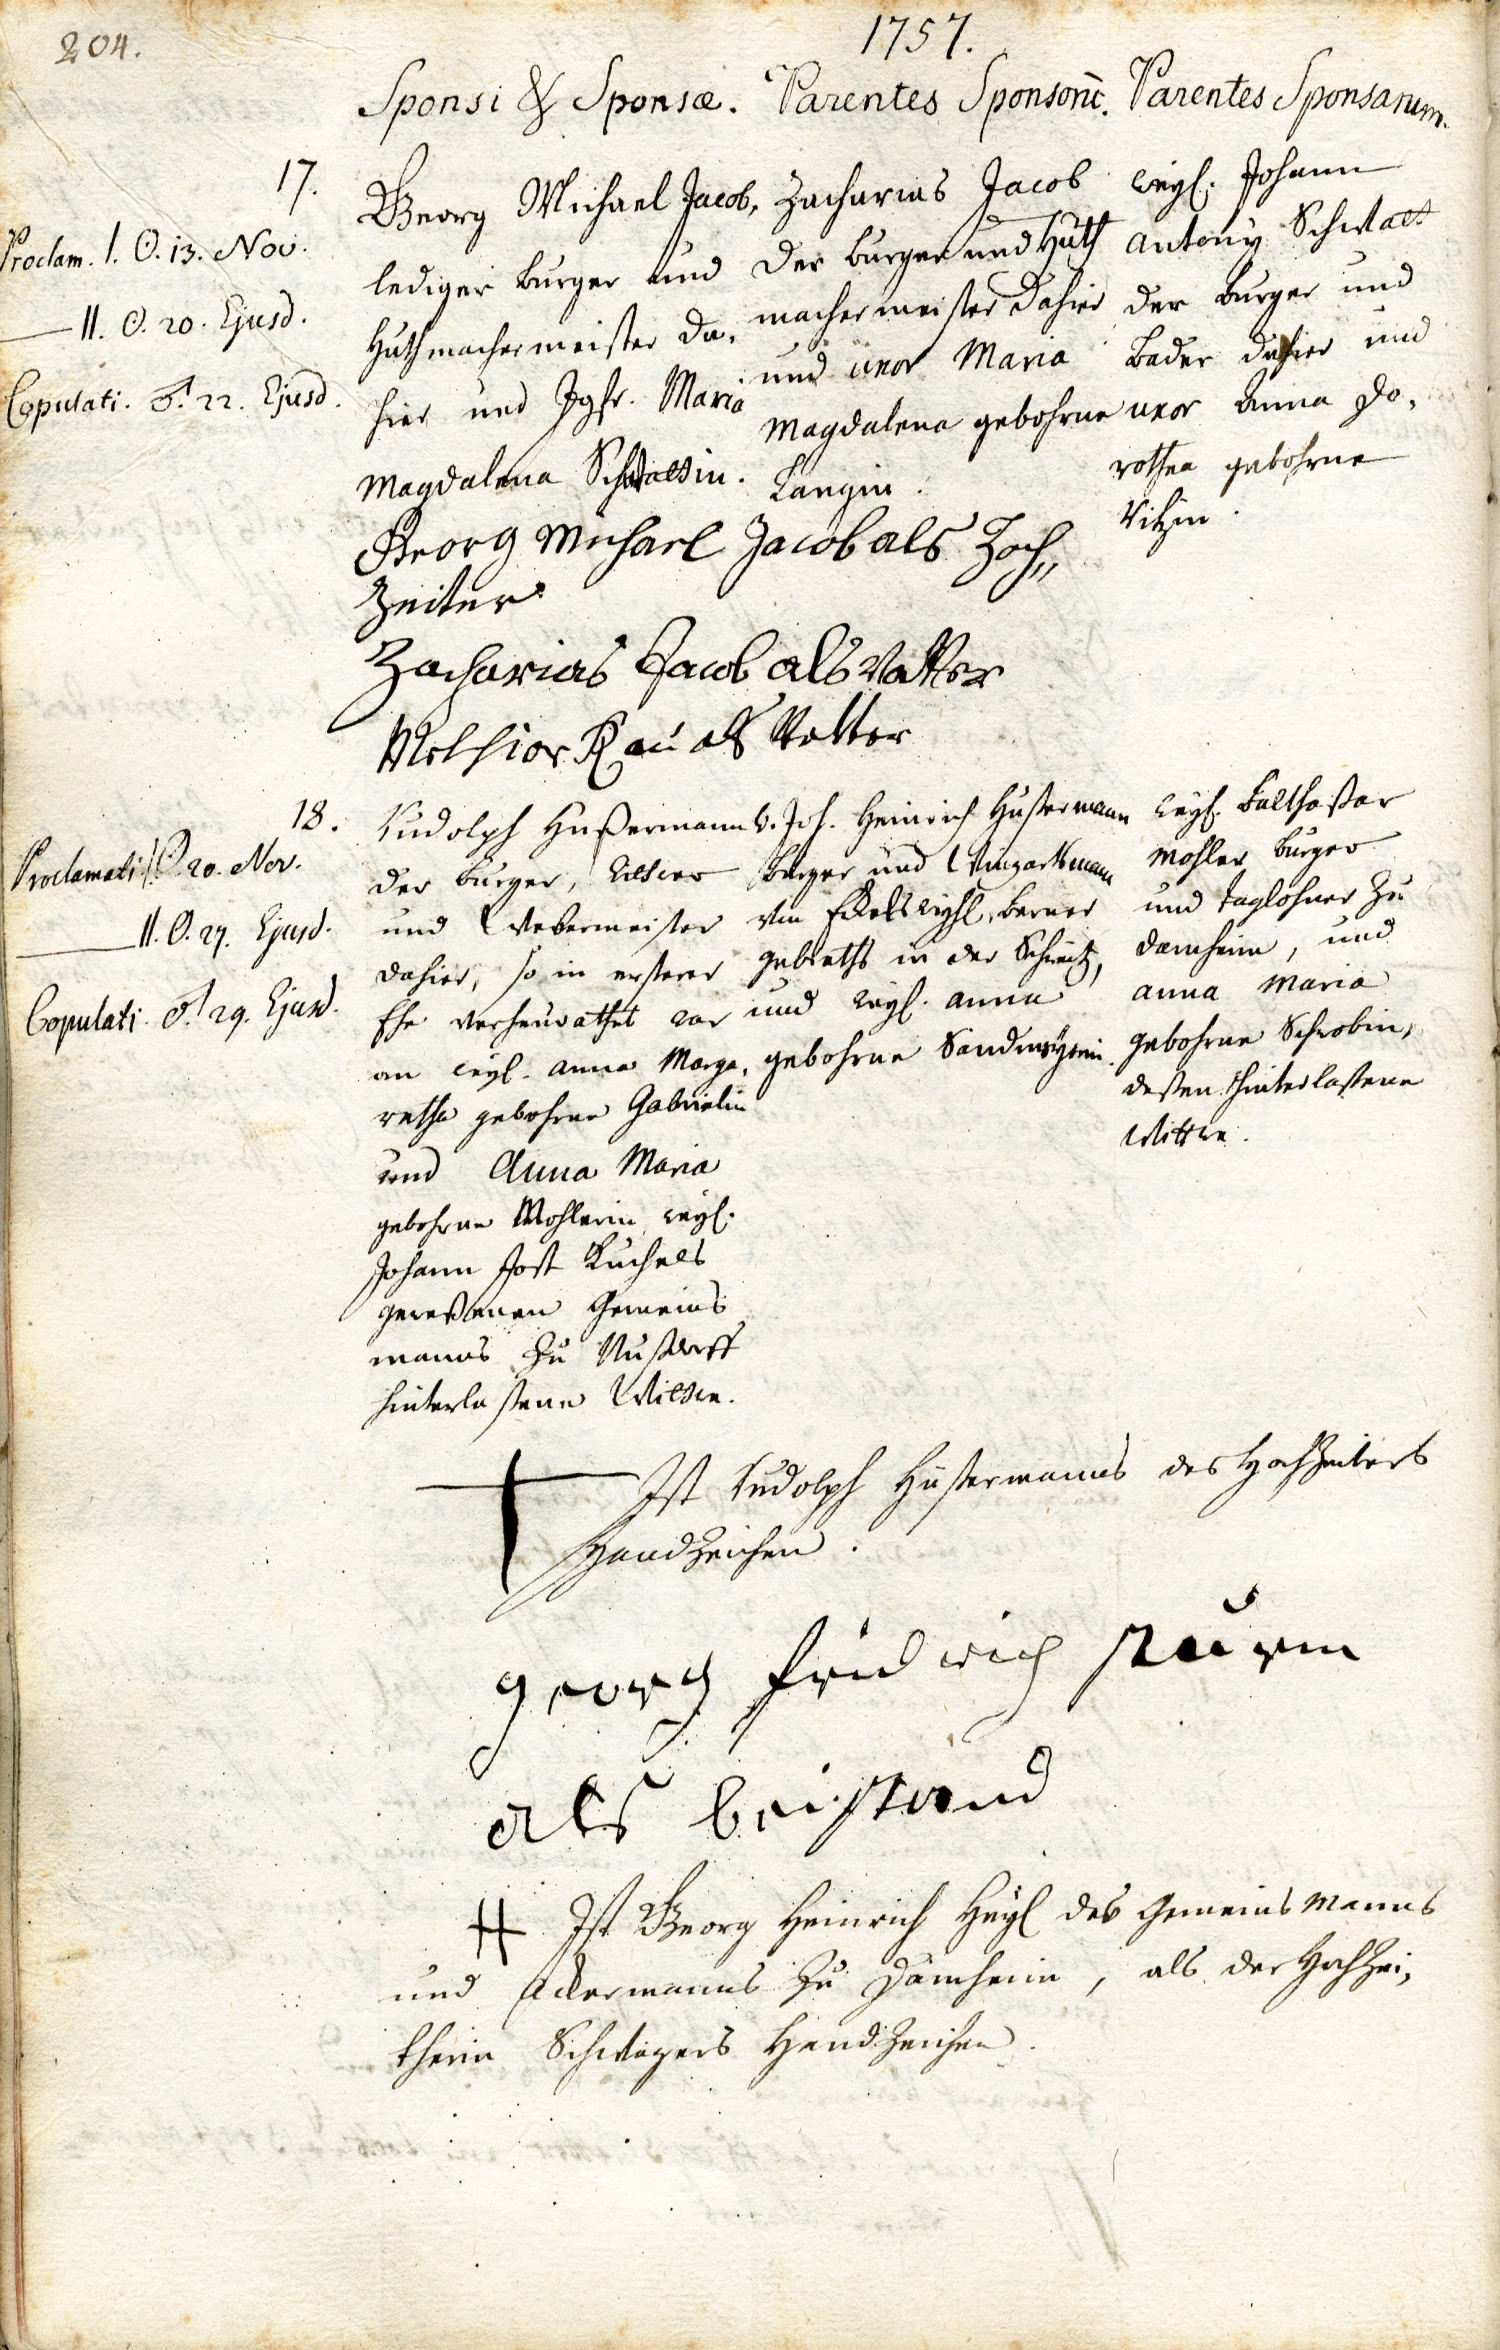 204.
1757.
Sponsi & Sponsæ. Parentes Sponsorũ. Parentes Sponsarum.
17.
Proclam. I. ☉. 13. Nov.
— II. ☉. 20. Ejusd.
Copulati. ♂. 22. Ejusd.
Georg Michael Jacob,
lediger Burger und
Huthmachermeister da,
hier und Jgfr. Maria
Magdalena
Zacharias Jacob
der Burger und Huth
machermeister dahier
und uxor Maria
Magdalena gebohrne
Langin.
weyl. Johann
Antony
der Burger und
Bader dahier und
uxor Anna Do,
rothea gebohrne
Georg Michael Jacob als Hoch„
Zeiter
Zacharias Jacob als Vatter
Melchior Rau als Vatter
18.
Proclamati I. ☉. 20. Nov.
— II. ☉. 27. Ejusd.
Copulati. ♂. 29. Ejusd.
Rudolph Hußermann
der Burger, Wittwer
und Webermeister
dahier, so in ersterer
Ehe verheurathet war
an weyl. Anna Marga,
retha gebohrne Gabrielin
und Anna Maria
gebohrne Mohlerin weyl.
Johann Jost Kuchels
geweßenen Gemeins
manns zu Nußdorff
hinterlaßene Wittwe.
Joh. Heinrich Hußermann
Burger und
von Berner
gebieths in der Schweitz,
und weyl. Anna
gebohrne
weyl. Balthaßar
Mohler Burger
und Taglöhner zu
Damheim, und
Anna Maria
gebohrne
deßen hinterlaßene
Wittwe.
Ist Rudolph Hußermanns des Hochzeiters
Handzeichen.
georg fridrich sturm
als beistand
Ist Georg Heinrich Heyl des Gemeinsmanns
und Ackermanns zu Damheim, als der Hochzei,
therin Schwagers Handzeichen.